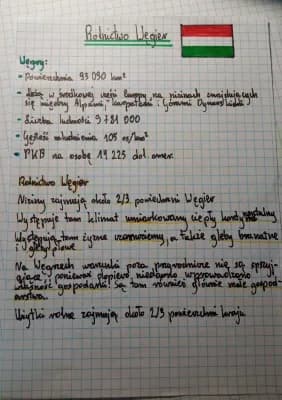 Rolnictwo Węgier
Węgry:
- Powierzchnia 93 030 km²
- Leżą w środkowej części Europy, na nizinach znajdujących
się między Alpami, Karpatami i Górami Dynarskimi
- Liczba ludności 9 781 000
- Gęstość zaludnienia 105 os/km²
- PKB na osobę 19 225 dol. amer.
Rolnictwo Węgier
Niziny zajmują około 2/3 powierzchni Węgier
Występuje tam klimat umiarkowany ciepły kontynentalny
Występują tam żyzne czarnoziemy, a także gleby brunatne
i płowe
Na Węgrzech warunki poza przyrodnicze nie są sprzy-
jające, ponieważ dopiero niedawno wprowadzono
własność gospodarki. Są tam również głównie małe gospod-
arstwa.
Użytki rolne zajmują około 2/3 powierzchni kraju